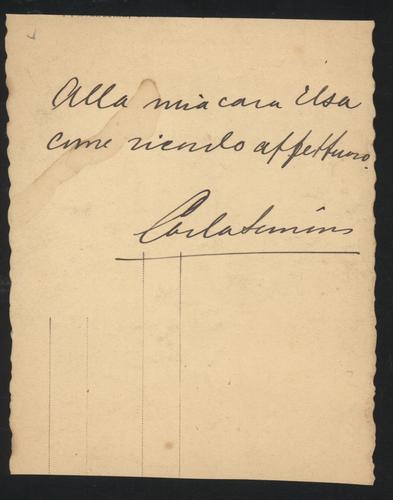 Alla mia cara Elsa
come ricordo affettuoso.
Carla